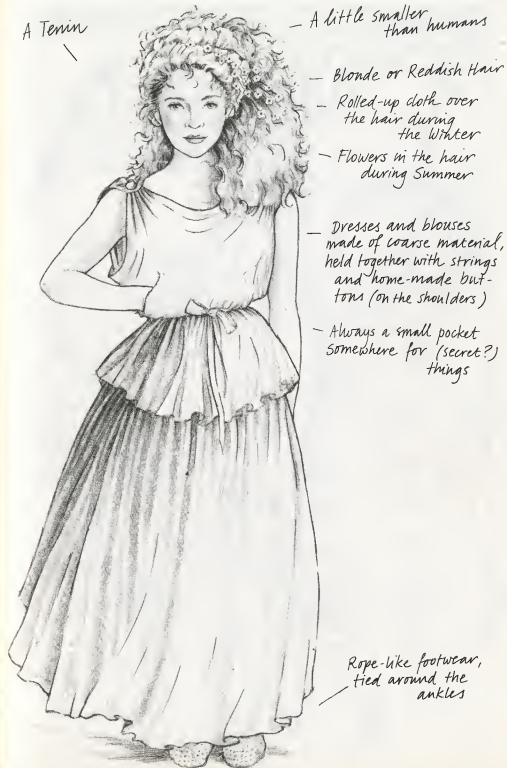 A Tenin
A little smaller
than humans
Blonde or Reddish Hair
Rolled-up cloth over
the hair during
the Winter
Flowers in the hair
during Summer
Dresses and blouses
made of coarse material,
held together with strings
and home-made but-
tons (on the shoulders)
Always a small pocket
somewhere for (secret?)
things
Rope-like footwear,
tied around the
ankles